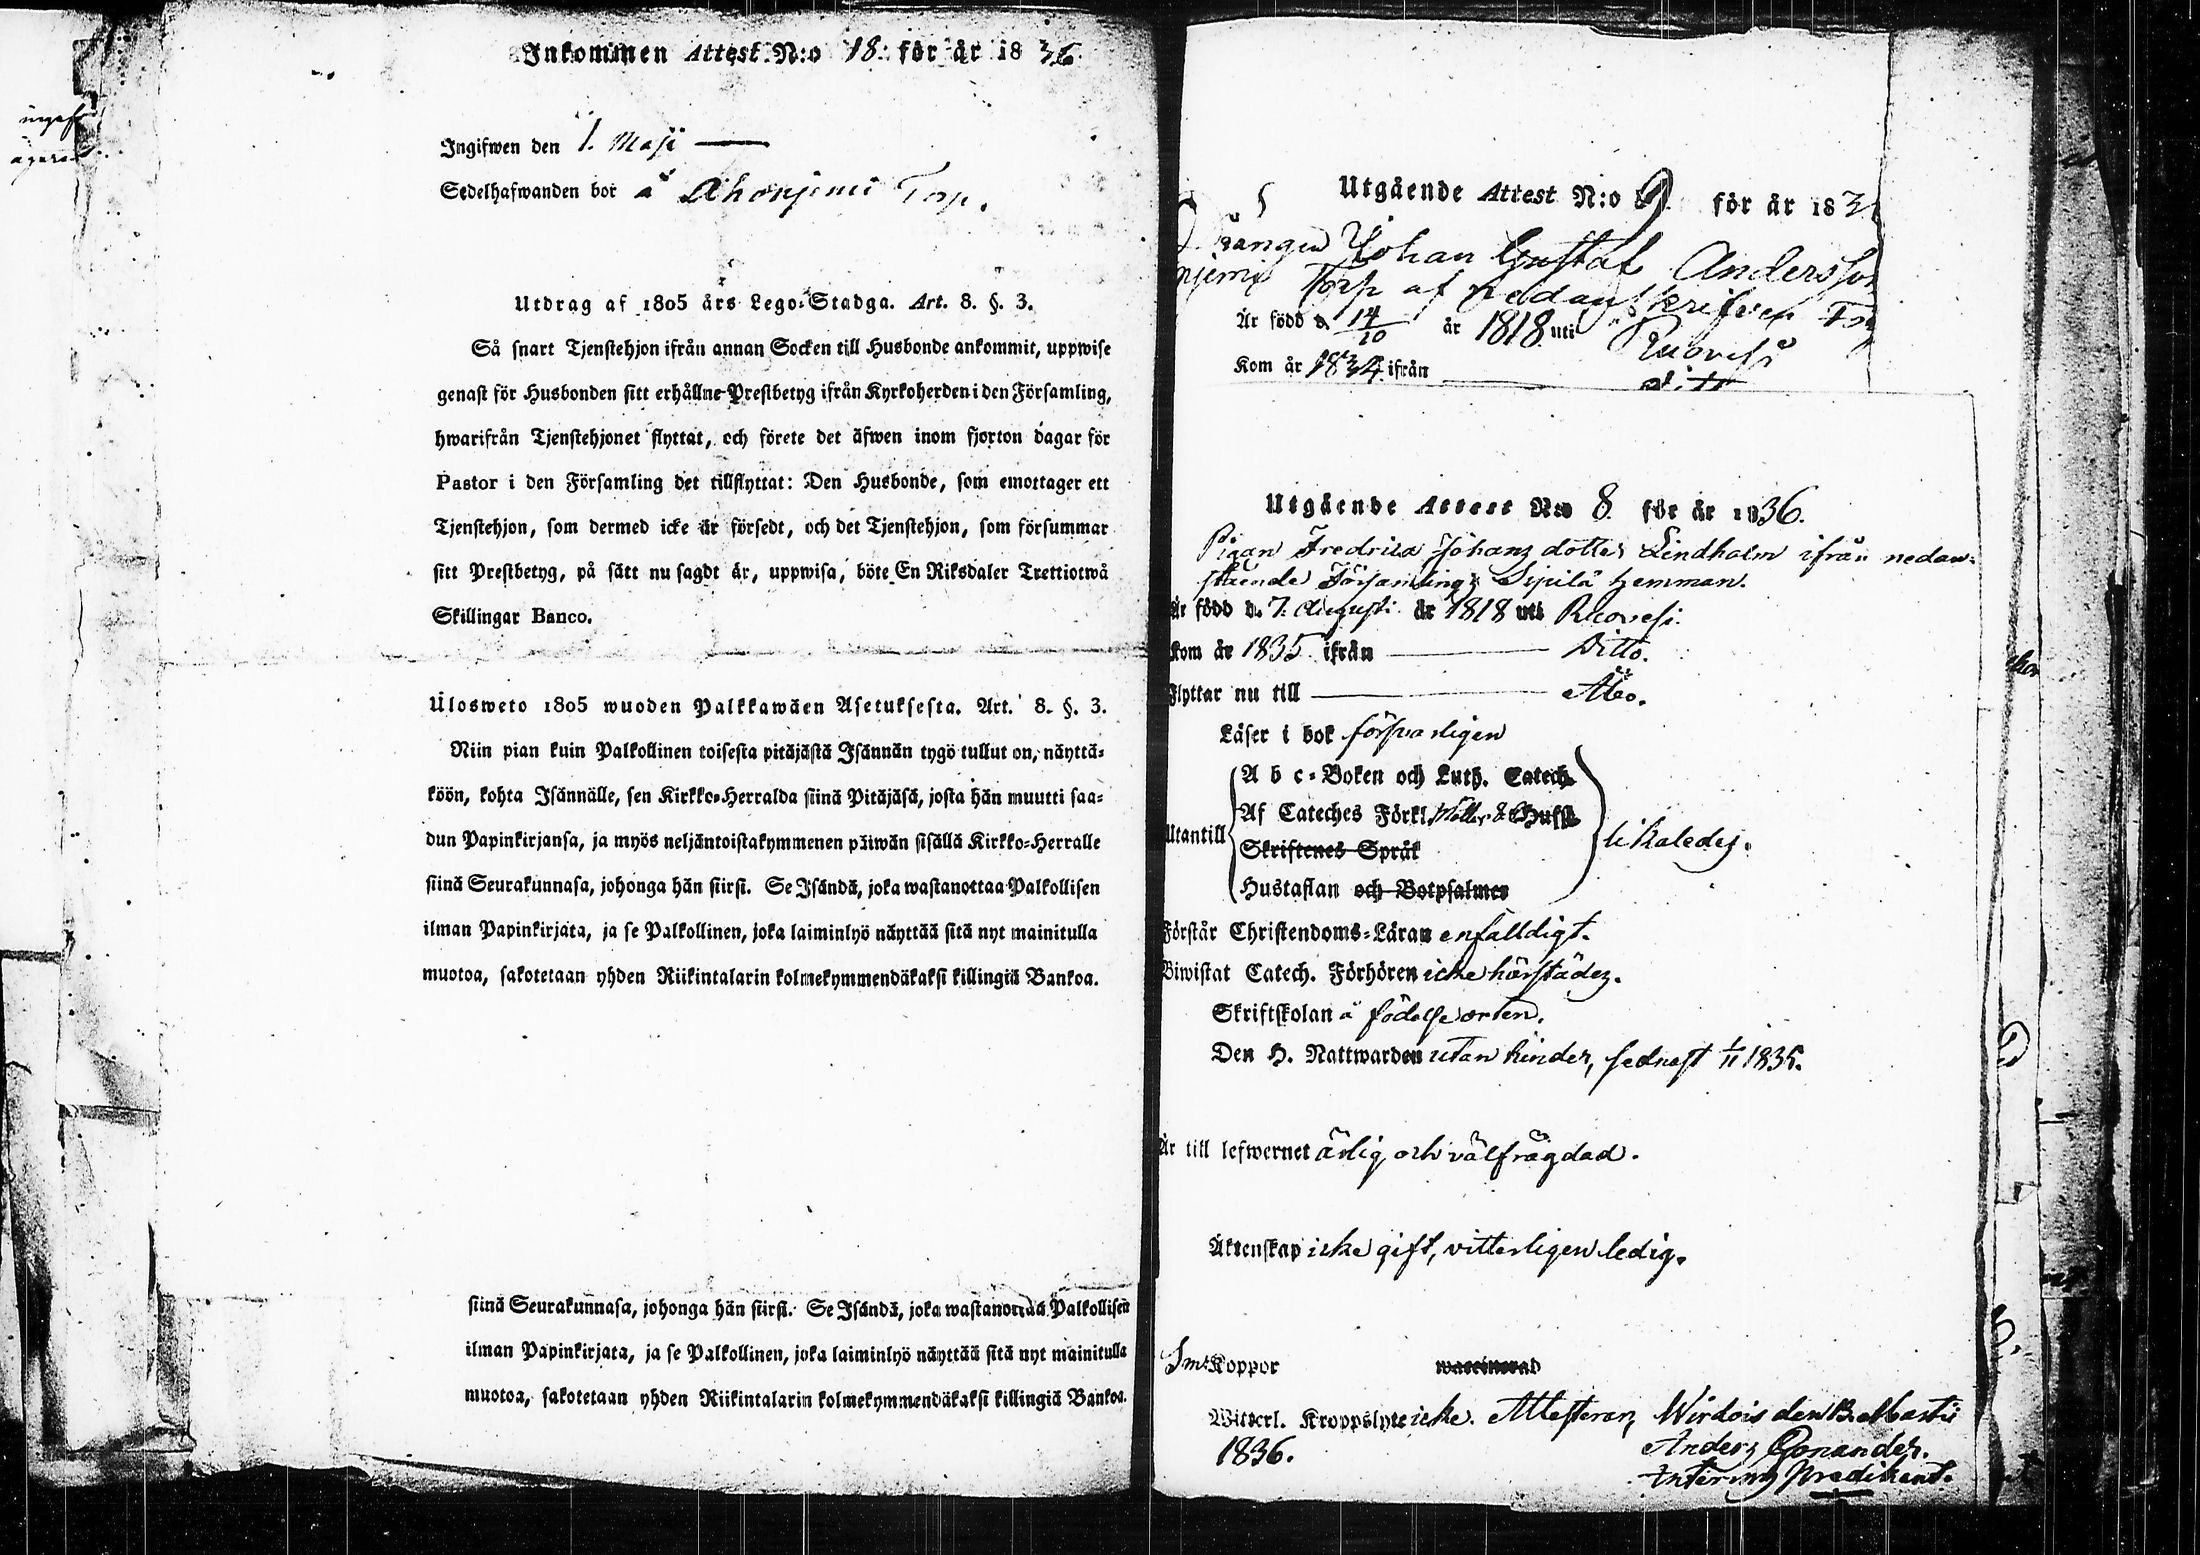 Inkommen Attest N:o 18. för år 1836.
Ingifwen den 1. Maji
Sedelhafwanden bor å Ahonjemi Torp.
Utdrag af 1805 års Lego-Stadga. Art. 8. §. 3.
Så snart Tjenstehjon ifrån annan Socken till Husbonde ankommit, uppwise
genast för Husbonden sitt erhållne Prestbetyg ifrån Kyrkoherden i den Församling,
hwarifrån Tjenstehjonet flyttat, och förete det äfwen inom fjorton dagar för
Pastor i den Församling det tillflyttat: Den Husbonde, som emottager ett
Tjenstehjon, som dermed icke är försedt, och det Tjenstehjon, som försummar
sitt Prestbetyg, på sätt nu sagdt är, uppwisa, böte En Riksdaler Trettiotwå
Skillingar Banco.
Ulosweto 1805 wuoden Palkkawäen Asetuksesta. Art. 8. §. 3.
Niin pian kuin Palkollinen toisesta pitäjästä Isännän tygö tullut on, näyttä-
köön, kohta Isännälle, sen Kirkko-Herralda siinä Pitäjäsä, josta hän muutti saa-
dun Papinkirjansa, ja myös neljäntoistakymmenen päiwän sisällä Kirkko-Herralle
siinä Seurakunnasa, johonga hän siirsi. Se Isändä, joka wastanottaa Palkollisen
ilman Papinkirjata, ja se Palkollinen, joka laiminlyö näyttää sitä nyt mainitulla
muotoa, sakotetaan yhden Riikintalarin kolmekymmendäkaksi killingiä Bankoa.
siinä Seurakunnasa, johonga hän siirsi. Se Isändä, joka wastanottaa Palkollisen
ilman Papinkirjata, ja se Palkollinen, joka laiminlyö näyttää sitä nyt mainitulla
muotoa, sakotetaan yhden Riikintalarin kolmekymmendäkaksi killingiä Bankoa.
Utgående Attest N:o 9. för år 183
Drängen Johan Gustaf Andersson
njemi Torp af nedanskrifven För
Är född d. 14/10 år 1818 uti Ruovesi
Kom år 1834 ifrån ditto
Utgående Attest N:o 8. för år 1836.
Pigan Fredrica Johans dotter Lindholm ifrån nedan-
stående Församlings Sipilä hemman.
Är född d. 7. Augusti år 1818 uti Ruovesi.
Kom år 1835 ifrån Ditto.
Flyttar nu till Åbo.
Läser i bok försvarligen
A b c-Boken och Luth. Catech.
Af Cateches Förkl.
Utantill likaledes.
Skriftenes Språk
Hustaflan och Botpsalmer
Förstår Christendoms-Läran enfalldigt.
Biwistat Catech. Förhören icke härstädes.
Skriftskolan å födelseorten.
Den H. Nattwarden utan hinder, sednast 1/11 1835.
Är till lefwernet ärlig och välfrägdad.
Äktenskap icke gift, vitterligen ledig.
Koppor waccinerad
Witterl. Kroppslyte icke. Attesterar, Wirdois den 13. Martii
1836. Anders
Interims Predikant.